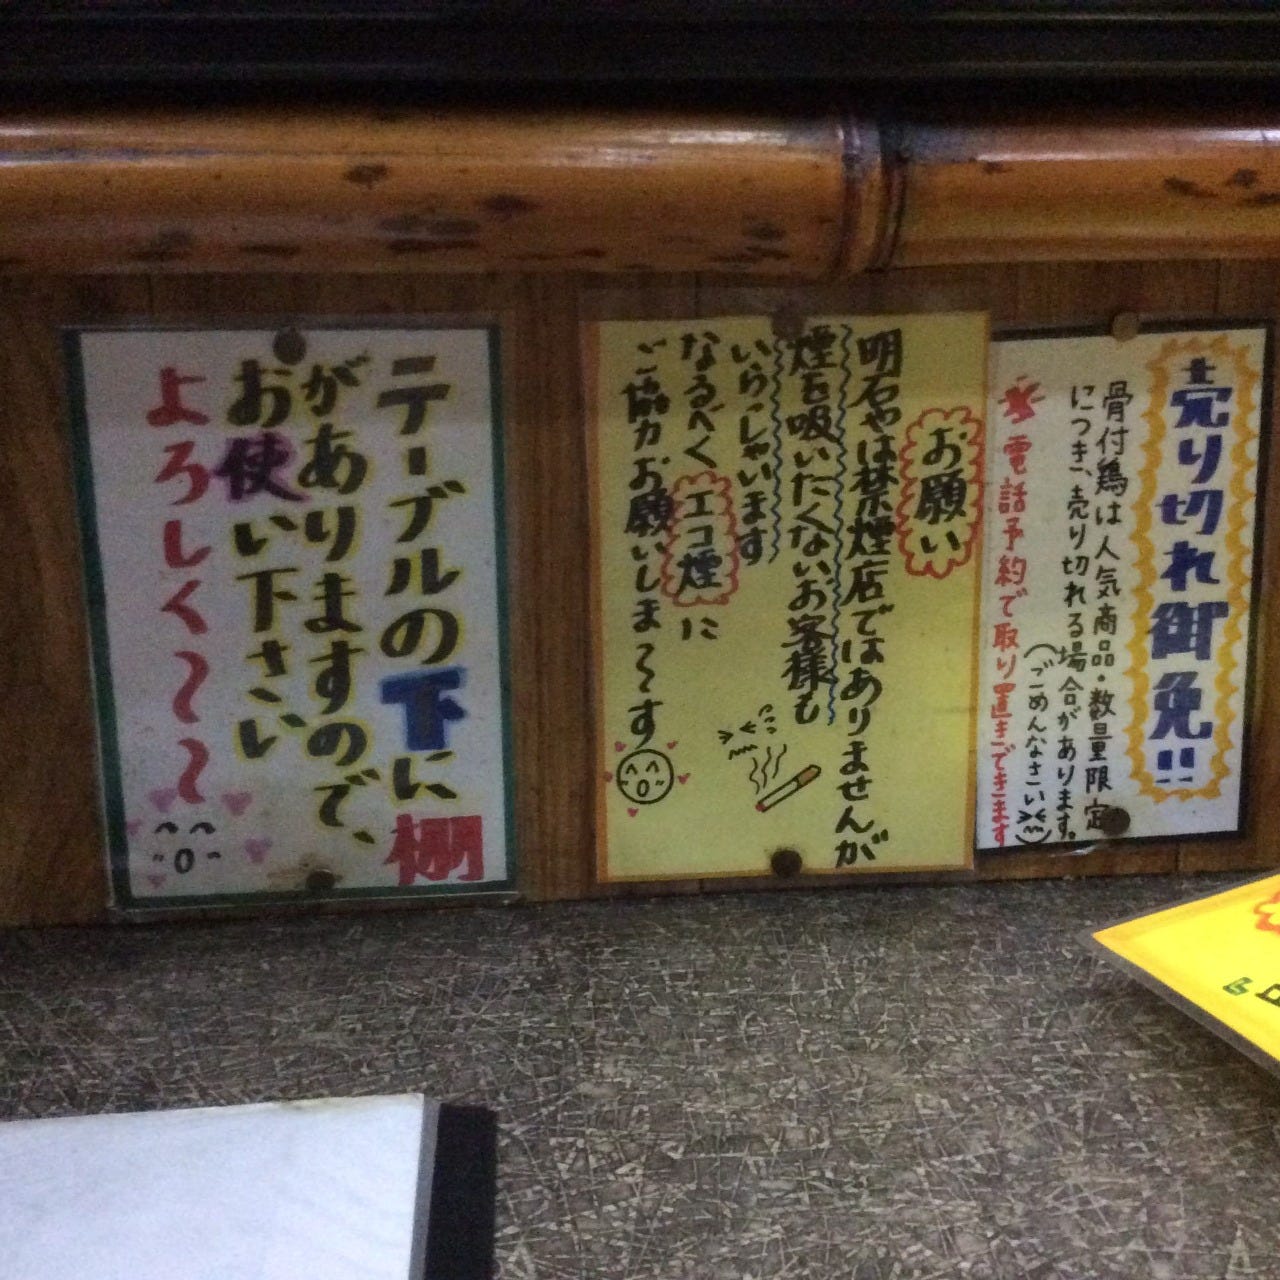 売り切れ御免!!
骨付鶏は人気商品・数量限定
につき、売り切れる場合があります。
(ごめんなさい><)
電話予約で取り置きできます
お願い
明石やは禁煙店ではありませんが
煙を吸いたくないお客様も
いらしゃいます
なるべくエコ煙に
ご協力お願いしま〜す
テーブルの下に棚
がありますので、
お使い下さい
よろしく〜〜〜